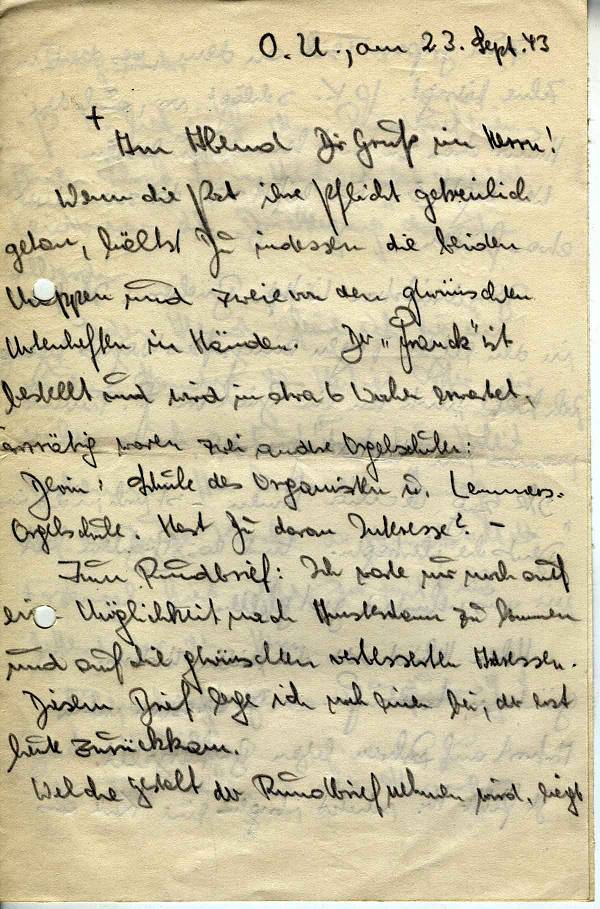 O. U., am 23. Sept. 43
+
Am Abend Dir Gruß im Herrn!
Wenn die Post ihre Pflicht getreulich
getan, hältst Du indessen die beiden
Mappen und zwei von den gewünschten
Notenheften in Händen. Der „Franck" ist
bestellt und wird in etwa 6 Wochen erwartet,
vorrätig waren zwei andre Orgelschulen:
Schule des Organisten u. Lemmens-
Orgelschule. Hast Du daran Interesse? –
Zum Rundbrief: Ich warte nur noch auf
eine Möglichkeit nach Amsterdam zu kommen
und auf die gewünschten verbesserten Adressen.
Diesem Brief lege ich noch einen bei, der erst
heute zurückkam.
Welche Gestalt der Rundbrief nehmen wird, liegt